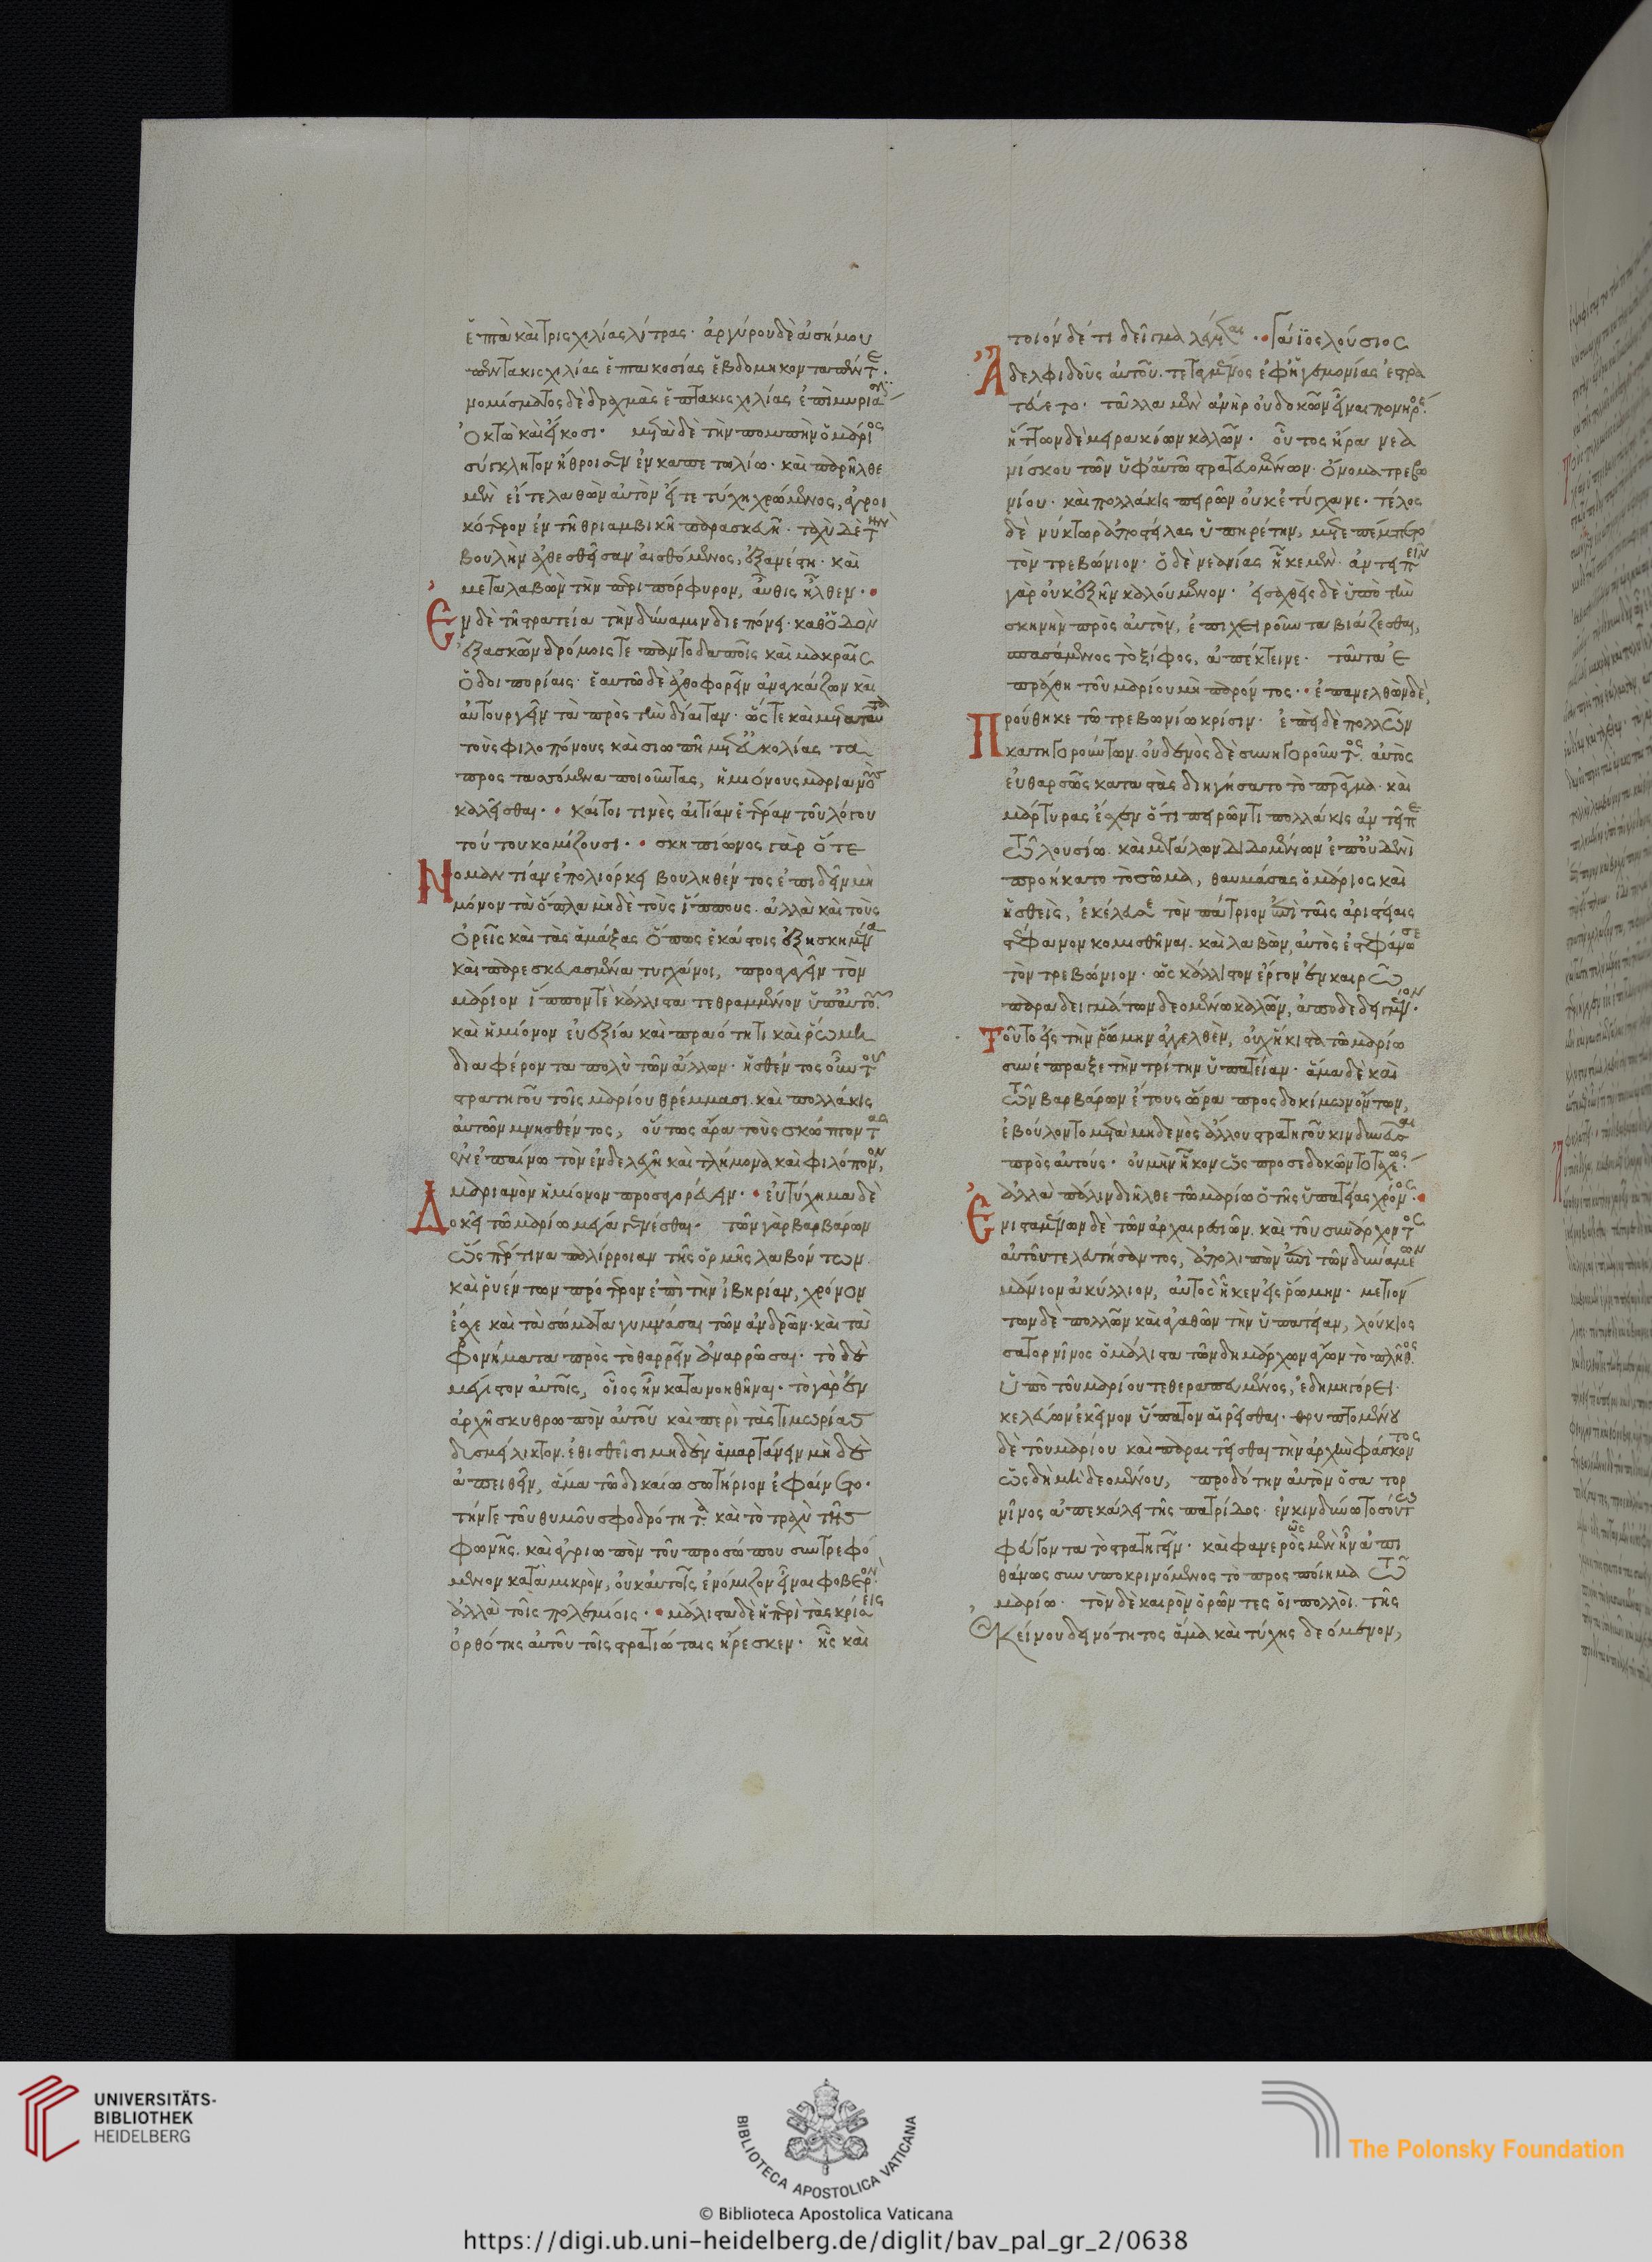 ἑπτὰ καὶ τρισχιλίας λίτρας· ἀργύρου δὲ ἀσήμου
πεντακισχιλίας ἑπτακοσίας ἑβδομηκονταπέντε·
νομίσματος δὲ δραχμὰς ἑπτακισχιλίας ἐπὶ μυριά
ὀκτὼ καὶ εἴκοσι· μετὰ δὲ τὴν πομπὴν ὁ μάριος
σύγκλητον ἤθροισεν ἐν καπετωλίω· καὶ παρῆλθε
μὲν εἴτε λαθὼν αὐτὸν εἴτε τύχη χρώμενος, ἀγροι
κότερον ἐν τῆ θριαμβικῆ παρασκευῆ· ταχὺ δὲ τὴν
βουλὴν ἀχθεσθεῖσαν αἰσθόμενος, ἐξανέστη· καὶ
μεταλαβὼν τὴν περιπόρφυρον, αὖθις ἦλθεν·
Ἐν δὲ τῆ στρατεία τὴν δύναμιν διεπόνει· καθ' ὁδὸν
ἐξασκῶν δρόμοις τε παντοδαποῖς καὶ μακραῖς
ὁδοιπορίαις· ἑαυτῶ δὲ ἀχθοφορεῖν ἀναγκάζων καὶ
αὐτουργεῖν τὰ πρὸς τὴν δίαιταν· ὥστε καὶ μετὰ ταῦτα
τοὺς φιλοπόνους καὶ σιωπῆ μετ' εὐκολίας τὰ
προστασσόμενα ποιοῦντας, ἡμιόνους μαριανοὺς
καλεῖσθαι· καίτοι τινὲς αἰτίαν ἑτέραν τοῦ λόγου
τούτου κομίζουσι· σκηπίωνος γὰρ ὅτε
Νομαντίαν ἐπολιόρκει βουληθέντος ἐπιδεῖν μὴ
μόνον τὰ ὅπλα μηδὲ τοὺς ἵππους· ἀλλὰ καὶ τοὺς
ὀρεῖς καὶ τὰς ἁμάξας ὅπως ἑκάστοις ἐξησκημένα
καὶ παρεσκευασμένα τυγχάνοι, προαγαγεῖν τὸν
μάριον ἵππον τὲ κάλλιστα τεθραμμένον ὑπ' αὐτοῦ
καὶ ἡμίονον εὐεξία καὶ πραότητι καὶ ῥώμη
διαφέροντα πολὺ τῶν ἄλλων· ἡσθέντος οὖν τοῦ
στρατηγοῦ τοῖς μαρίου θρέμμασι· καὶ πολλάκις
αὐτῶν μνησθέντος, οὕτως ἄρα τοὺς σκώπτοντας
ἐν ἐπαίνω τὸν ἐνδελεχῆ καὶ τλήμονα καὶ φιλόπονον,
μαριανὸν ἡμίονον προσαγορεύειν· εὐτύχημα δὲ
Δοκεῖ τῶ μαρίω μέγα γενέσθαι· τῶν γὰρ βαρβάρων
ὥσπερ τινα παλίρροιαν τῆς ὁρμῆς λαβόντων
καὶ ῥυέντων πρότερον ἐπὶ τὴν ἰβηρίαν, χρόνον
ἔσχε καὶ τὰ σώματα γυμνάσαι τῶν ἀνδρῶν· καὶ τὰ
φρονήματα πρὸς τὸ θαρρεῖν ἀναρρῶσαι· τὸ δὲ
μέγιστον αὐτοῖς, οἷος ἦν κατανοηθῆναι· τὸ γὰρ ἐν
ἀρχῆ σκυθρωπὸν αὐτοῦ καὶ περὶ τὰς τιμωρίας
δυσμείλικτον· ἐθισθεῖσι μηδὲν ἁμαρτάνειν μὴ δὲ
ἀπειθεῖν, ἅμα τῶ δικαίω σωτήριον ἐφαίνετο·
τήν τε τοῦ θυμοῦ σφοδρότητα καὶ τὸ τραχὺ τῆς
φωνῆς· καὶ ἀγριωπὸν τοῦ προσώπου συντρεφό
μενον κατὰ μικρὸν, οὐκ αὐτοῖς ἐνόμιζον εἶναι φοβερὸν
ἀλλὰ τοῖς πολεμίοις· μάλιστα δὲ ἡ περὶ τὰς κρίσεις
ὀρθότης αὐτοῦ τοῖς στρατιώταις ἤρεσκεν· ἧς καὶ
τοιόνδέ τι δεῖγμα λέγεται· Γάϊος λούσιος
Ἀδελφιδοῦς αὐτοῦ· τεταγμένος ἐφ' ἡγεμονίας ἐστρα
τεύετο· τἆλλα μὲν ἀνὴρ οὐ δοκῶν εἶναι πονηρός·
ἥττων δὲ μειρακίων καλῶν· οὗτος ἤρα νεα
νίσκου τῶν ὑφ' αὑτῶ στρατευομένων· ὄνομα τρεβω
νίου· καὶ πολλάκις πειρῶν οὐκ ἐτύγχανε· τέλος
δὲ νύκτωρ ἀποστείλας ὑπηρέτην, μετεπέμπετο
τὸν τρεβώνιον· ὁ δὲ νεανίας ἧκε μὲν· ἀντειπεῖν
γὰρ οὐκ ἐξῆν καλούμενον· εἰσαχθεὶς δὲ ὑπὸ τὴν
σκηνὴν πρὸς αὐτὸν, ἐπιχειροῦντα βιάζεσθαι,
σπασάμενος τὸ ξίφος, ἀπέκτεινε· ταῦτα ἐ
πράχθη τοῦ μαρίου μὴ παρόντος· ἐπανελθὼν δὲ,
Προύθηκε τῶ τρεβωνίω κρίσιν· ἐπεὶ δὲ πολλῶν
κατηγορούντων· οὐδενὸς δὲ συνηγοροῦντος αὐτὸς
εὐθαρσῶς καταστὰς διηγήσατο τὸ πρᾶγμα· καὶ
μάρτυρας ἔσχεν ὅτι πειρῶντι πολλάκις ἀντεῖπε
τῶ λουσίω· καὶ μεγάλων διδομένων ἐπ' οὐδενὶ
προήκατο τὸ σῶμα, θαυμάσας ὁ μάριος καὶ
ἡσθεὶς, ἐκέλευσε τὸν πάτριον ἐπὶ ταῖς ἀριστείαις
στέφανον κομισθῆναι· καὶ λαβὼν, αὐτὸς ἐστεφάνωσε
τὸν τρεβώνιον· ὡς κάλλιστον ἔργον ἐν καιρῶ
παραδειγμάτων δεομένω καλῶν, ἀποδεδειγμένον·
Τοῦτο εἰς τὴν ῥώμην ἀγγελθὲν, οὐχ ἥκιστα τῶ μαρίω
συνέπραξε τὴν τρίτην ὑπατείαν· ἅμα δὲ καὶ
τῶν βαρβάρων ἔτους ὥρα προσδοκίμων ὄντων,
ἐβούλοντο μετὰ μηδενὸς ἄλλου στρατηγοῦ κινδυνεῦσαι
πρὸς αὐτούς· οὐ μὴν ἧκον ὡς προσεδοκῶντο ταχέως·
ἀλλὰ πάλιν διῆλθε τῶ μαρίω ὁ τῆς ὑπατείας χρόνος·
Ἐνισταμένων δὲ τῶν ἀρχαιρεσιῶν· καὶ τοῦ συνάρχοντος
αὐτοῦ τελευτήσαντος, ἀπολιπὼν ἐπὶ τῶν δυνάμεων
μάνιον ἀκύλλιον, αὐτὸς ἧκεν εἰς ῥώμην· μετιόν
των δὲ πολλῶν καὶ ἀγαθῶν τὴν ὑπατείαν, λούκιος
σατορνῖνος ὁ μάλιστα τῶν δημάρχων ἄγων τὸ πλῆθος
ὑπὸ τοῦ μαρίου τεθεραπευμένος, ἐδημηγόρει
κελεύων ἐκεῖνον ὕπατον αἱρεῖσθαι· θρυπτομένου
δὲ τοῦ μαρίου καὶ παραιτεῖσθαι τὴν ἀρχὴν φάσκοντος
ὡς δὴ μὴ δεομένου, προδότην αὐτὸν ὁ σατορ
νῖνος ἀπεκάλει τῆς πατρίδος· ἐν κινδύνω τοσούτω
φεύγοντα τὸ στρατηγεῖν· καὶ φανερὸς μὲν ἦν ἀπι
θάνως συνυποκρινόμενος τὸ προσποίημα τῶ
μαρίω· τὸν δὲ καιρὸν ὁρῶντες οἱ πολλοὶ τῆς
ἐκείνου δεινότητος ἅμα καὶ τύχης δεόμενον,
UNIVERSITÄTS-
BIBLIOTHEK
HEIDELBERG
BIBLIOTECA APOSTOLICA VATICANA
The Polonsky Foundation
© Biblioteca Apostolica Vaticana
https://digi.ub.uni-heidelberg.de/diglit/bav_pal_gr_2/0638